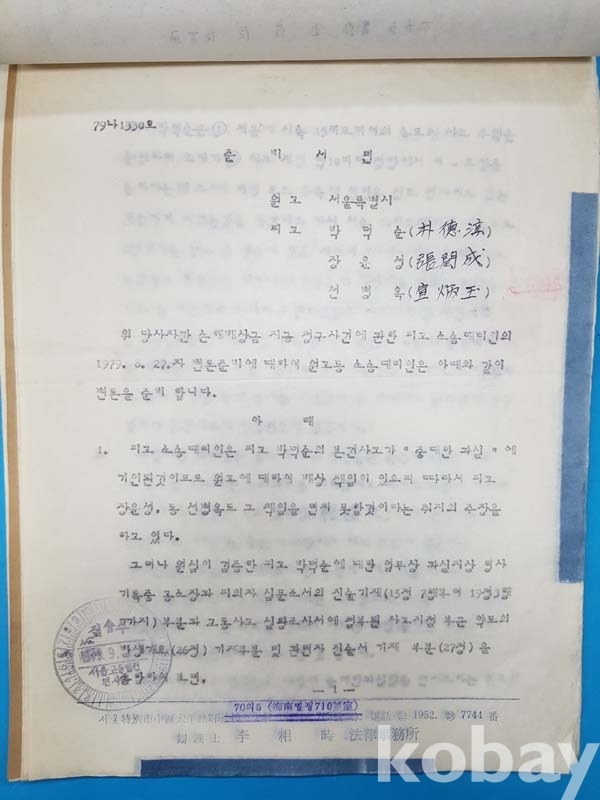 79나1330호
준 비 서 면
원 고 서울특별시
피 고 박 덕 순 (朴德淳)
장 윤 성 (張閏成)
선 병 옥 (宣炳玉)
위 당사자간 손해배상금 지급 청구사건에 관한 피고 소송대리인의
1979. 8. 27.자 변론준비에 대하여 원고등 소송대리인은 아래와 같이
변론을 준비 합니다.
아 래
1. 피고 소송대리인은 피고 박덕순의 본건사고가 "중대한 과실"에
기인된것이므로 원고에 대하여 배상 책임이 있으며 따라서 피고
장윤성, 동 선병옥도 그 책임을 면치 못할것이라는 취지의 주장을
하고 있다.
그러나 원심이 검증한 피고 박덕순에 대한 업무상 과실치상 형사
기록중 공소장과 피의자 심문조서의 진술기재(15정 7행부터 19정3행
까지) 부분과 교통사고 실황조사서에 첨부된 사고지점 부근 약도의
발생개요(26정) 기재부분 및 관련자 진술서 기재 부분(27정) 을
보면.
— 1 —
70의5 (海南빌딩710號室)
서울特別市中區太平路 1952. 7744 番
辯護士 李 相 時 法律事務所
서울고등법원
kobay